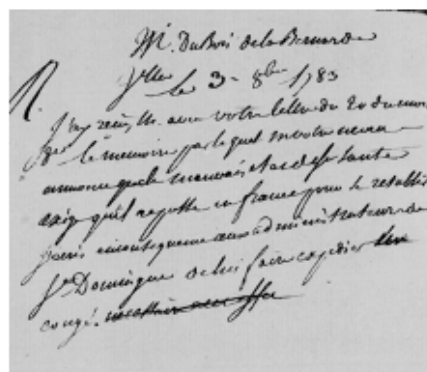 M. DuBois de la Bernarde
le 3 - 8bre 1783
R.
J'ay reçu, M. avec votre lettre du 20 du mois
le memoire par lequel M votre neveu
annonce que le mauvais etat de sa santé
exige qu'il repasse en france pour le retablir
j'ecris en consequence aux administrateurs de
St Domingue de lui faire expedier un
congé.